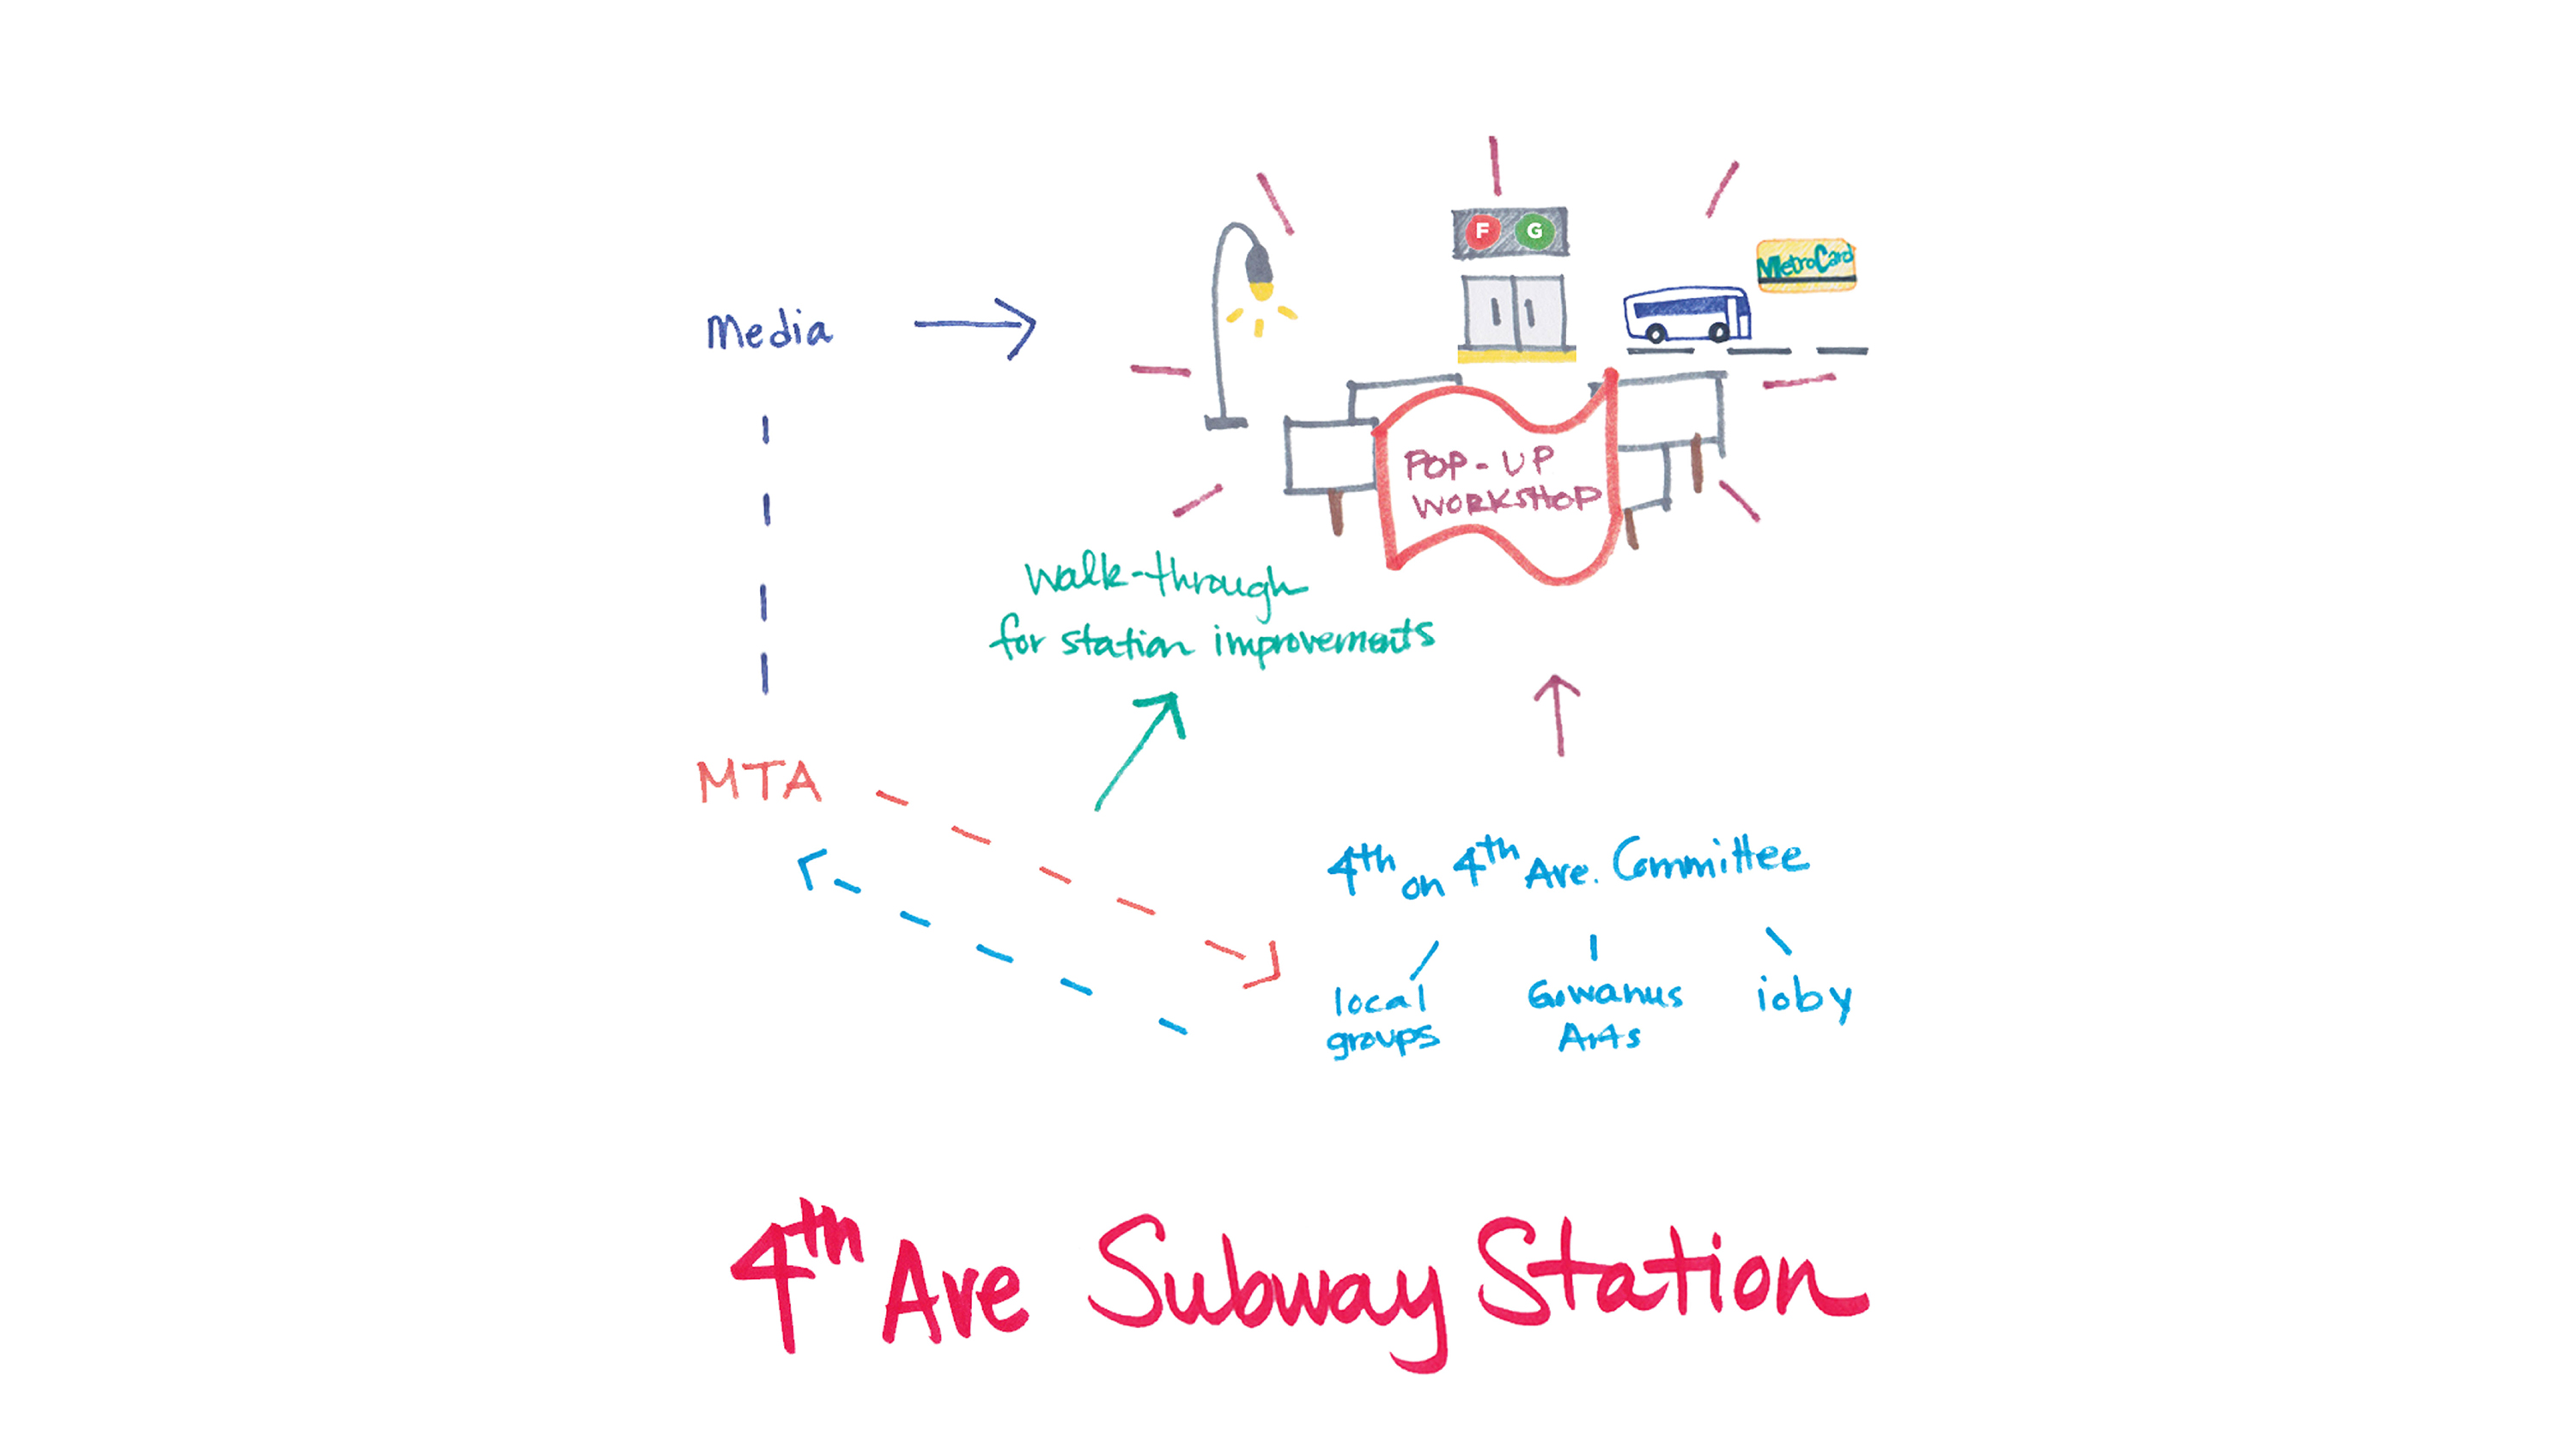 F G
MetroCard
Media
POP-UP
WORKSHOP
walk-through
for station improvements
MTA
4th on 4th Ave. Committee
local
groups
Gowanus
Arts
ioby
4th Ave Subway Station